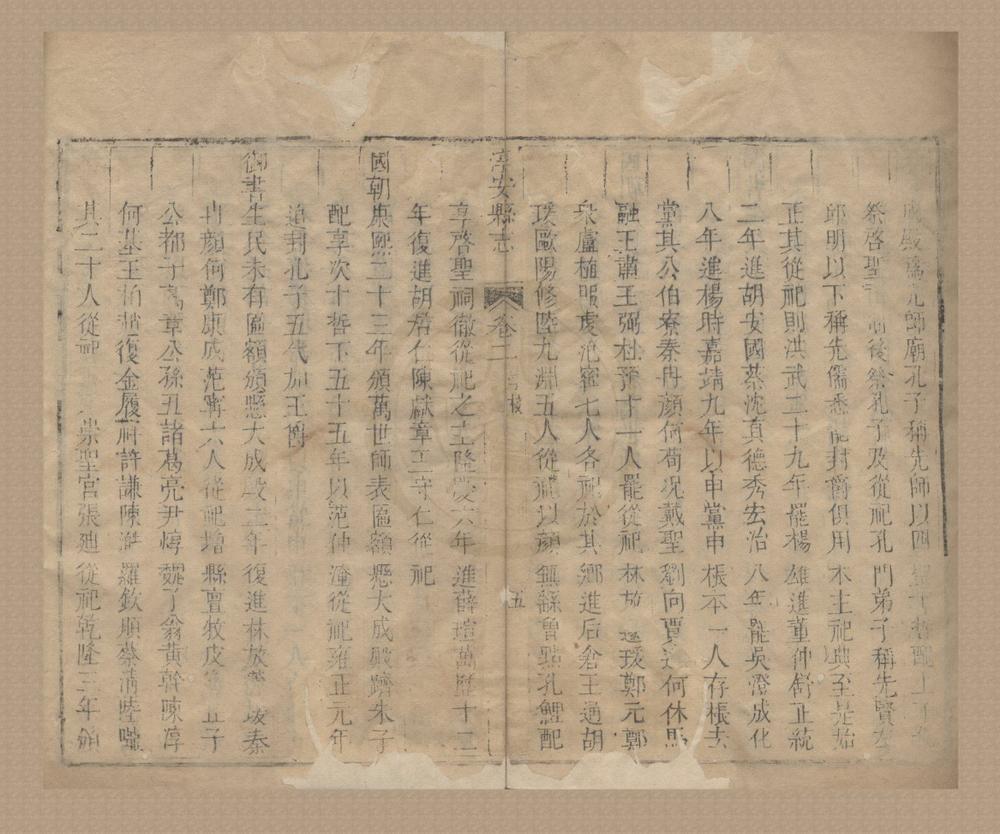 成殿爲先師廟孔子稱先師以四
祭啓聖後祭孔子及從祀孔門弟子稱先賢左
邱明以下稱先儒悉罷封爵俱用木主祀典至是始
正其從祀則洪武二十九年罷楊雄進董仲舒正統
二年進胡安國蔡沈真德秀宏治八年罷吳澄成化
八年進楊時嘉靖九年以申黨申棖本一人存棖去
黨其公伯寮秦冉顏何荀况戴聖劉向賈逵何休馬
融王肅王弼杜預十一人罷從祀林放蘧瑗鄭元鄭
衆盧植服虔范甯七人各祀於其鄉進后倉王通胡
瑗歐陽修陸九淵五人從祀以顏無繇曾點孔鯉配
亭安縣志 卷二 五
享啓聖祠徹從祀之主隆慶六年進薛瑄萬曆十二
年復進胡居仁陳獻章王守仁從祀
國朝康熙二十三年頒萬世師表匾額懸大成殿躋朱子
配享次十哲下五十五年以范仲淹從祀雍正元年
追封孔子五代加王爵
御書生民未有匾額頒懸大成殿二年復進林放蘧瑗秦
冉顏何鄭康成范甯六人從祀增縣亶牧皮樂正子
公都子萬章公孫丑諸葛亮尹焞魏了翁黃幹陳淳
何基王柏趙復金履祥許謙陳澔羅欽順蔡清陸隴
其二十人從祀崇聖宮張廸從祀乾隆三年頒